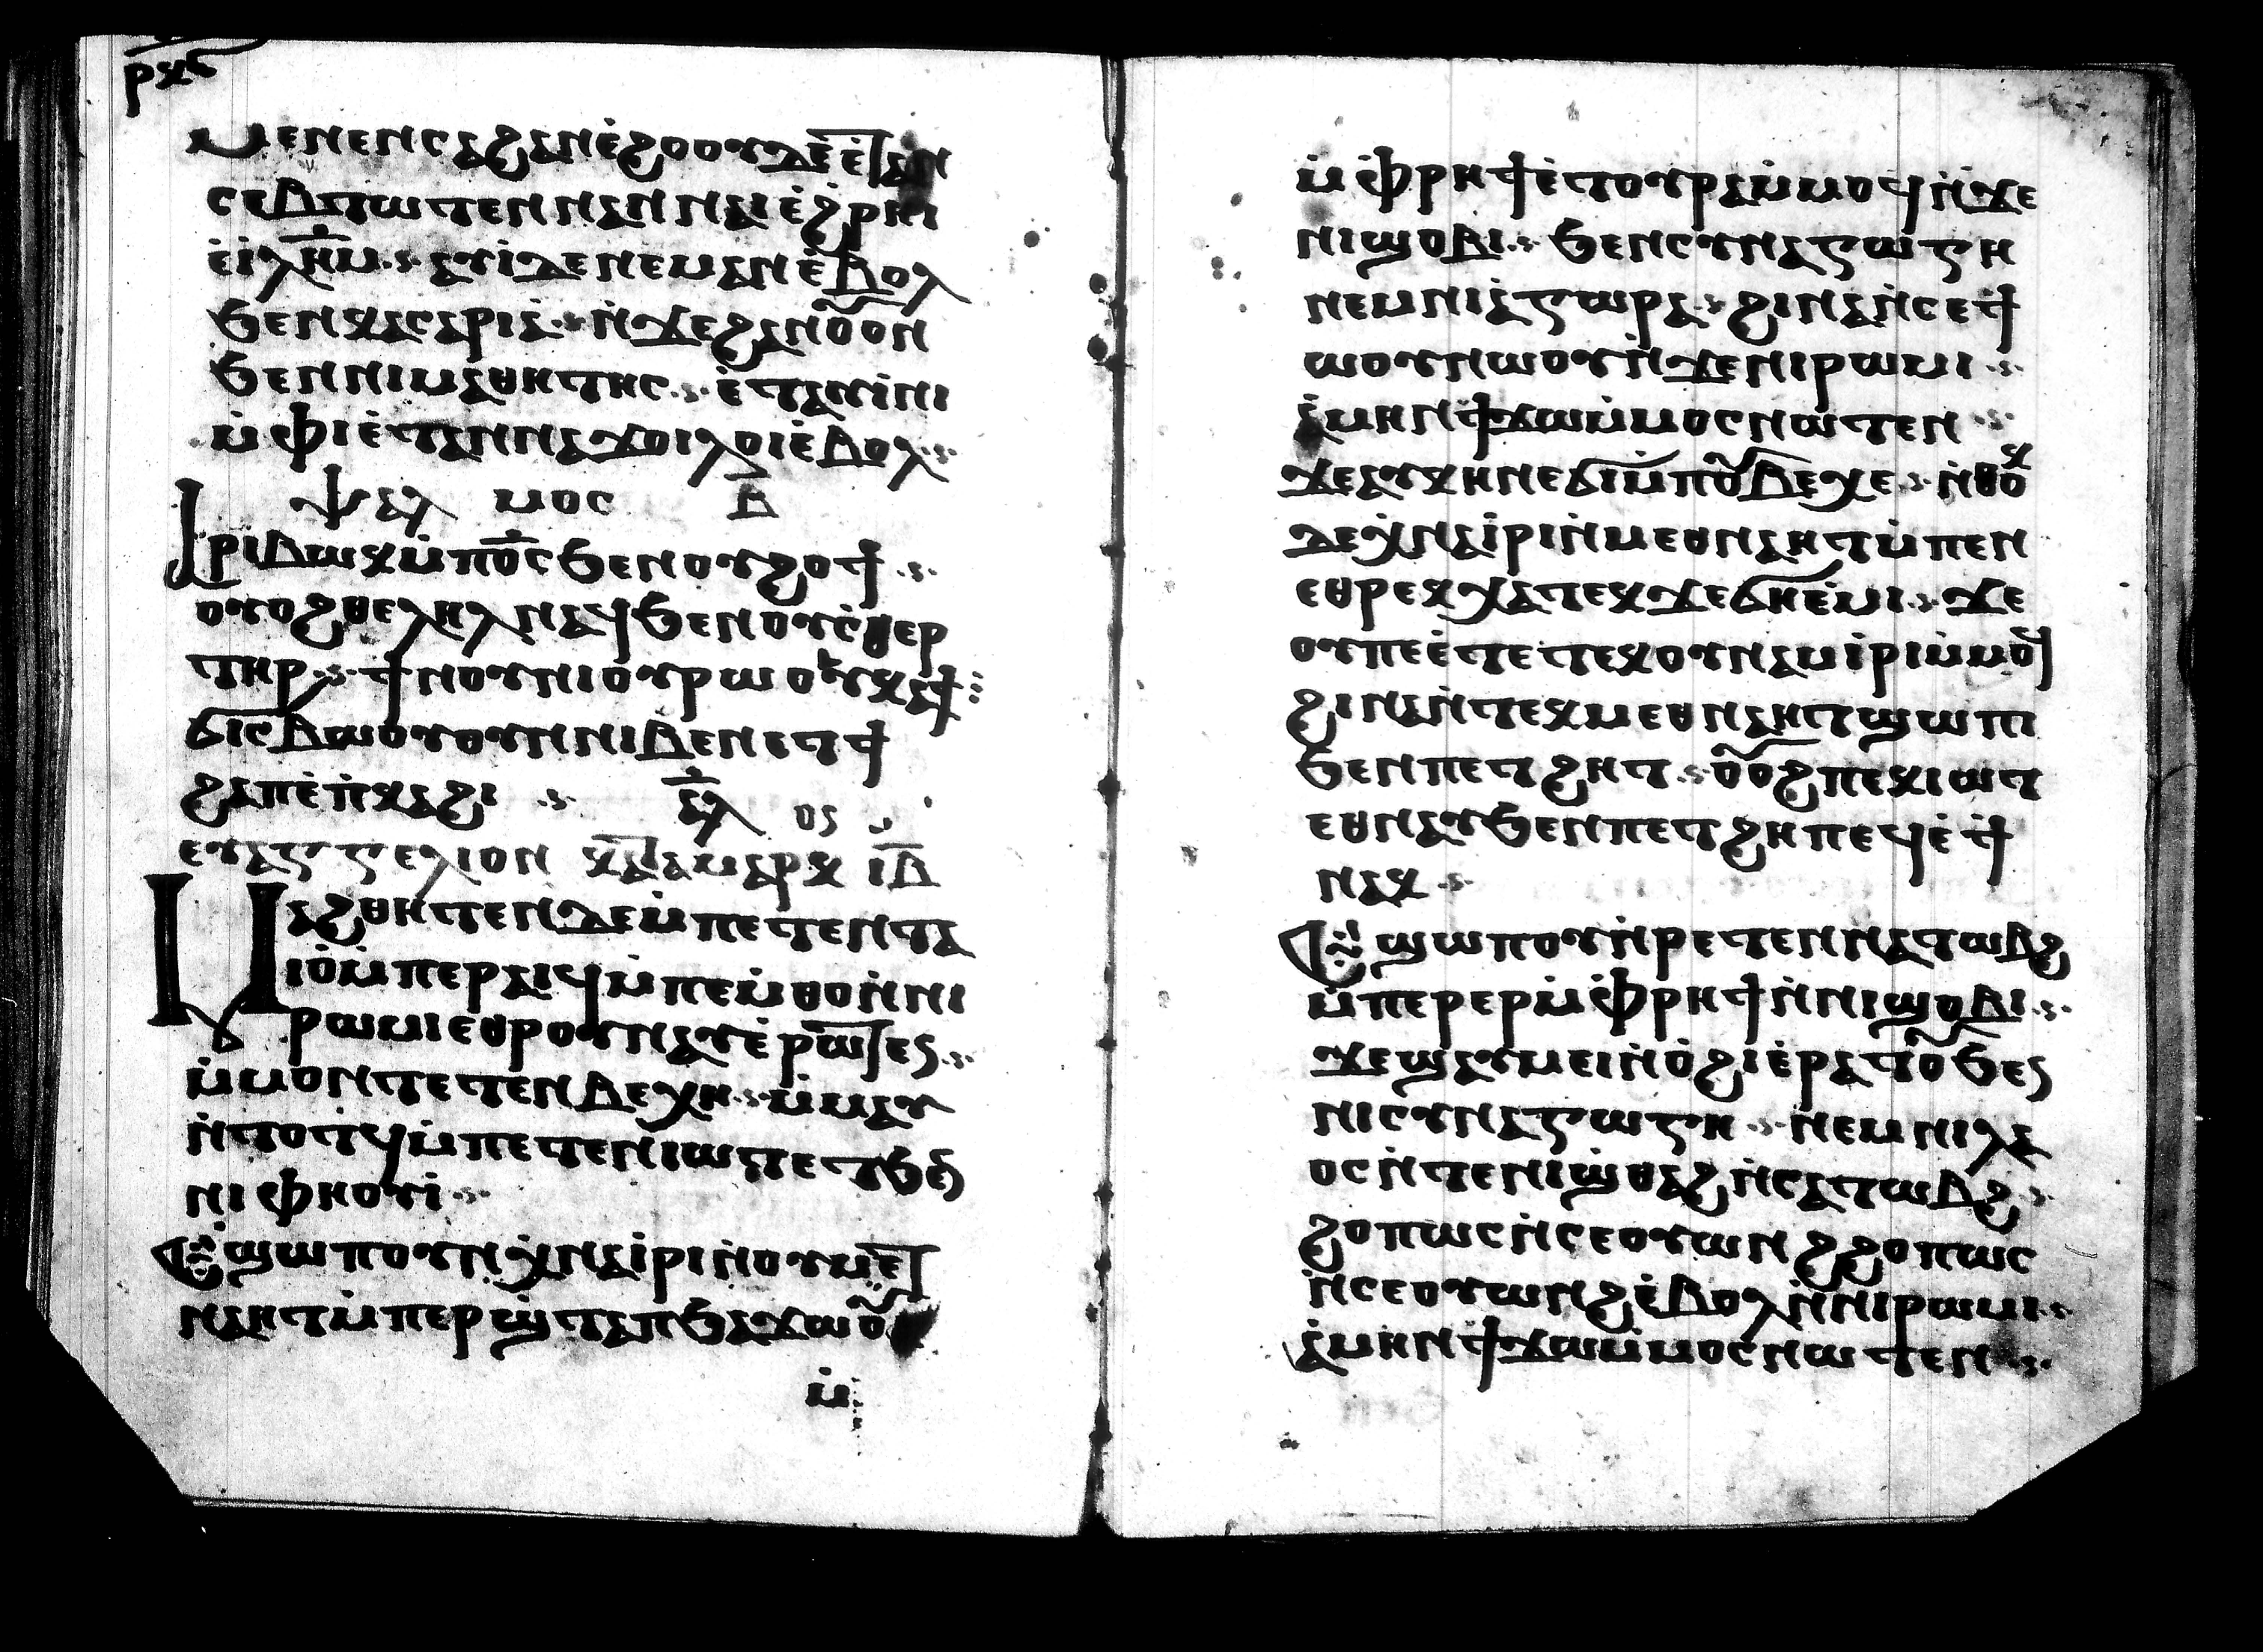 ⲣⲝⲋ
ⲙⲉⲛⲉⲛⲥⲁϩⲁⲛⲉ̀ϩⲟⲟⲩⲇⲉⲉ̀ⲧⲁⲛ
ⲥⲉⲃⲧⲱⲧⲉⲛⲛⲁⲛⲛⲁⲓⲉ̀ϩⲣⲏⲓ
ⲉ̀ⲓ̀ⲗ̅ⲏ̅ⲙ̅ ⲁⲩⲓ̀ⲇⲉⲛⲉⲙⲁⲛⲉ̀ⲃⲟⲗ
ϧⲉⲛⲕⲁⲥⲁⲣⲓⲁ̀ ⲛ̀ϫⲉϩⲁⲛⲟⲩⲟⲛ
ϧⲉⲛⲛⲓⲙⲁⲑⲏⲧⲏⲥ ⲉ̀ⲧⲁⲛⲓ̀ⲛⲓ
ⲙ̀ⲫⲓⲉ̀ⲧⲁⲛⲛⲁϫⲟⲓⲗⲟⲓⲉ̀ⲃⲟⲗ
ⲯⲁⲗ ⲙⲟⲥ ⲃ̅
ⲁⲣⲓⲃⲱⲕⲙ̀ⲡⲟ̅ⲥ̅ϧⲉⲛⲟⲩϩⲟϯ
ⲟⲩⲟϩⲑⲉⲗⲏⲗⲛⲁϥϧⲉⲛⲟⲩⲥ̀ⲑⲉⲣ
ⲧⲏⲣ ϯⲛⲟⲩⲛⲓⲟⲩⲣⲱⲟⲩⲕⲁϯ
ϭⲓⲥⲃⲱⲟⲩⲟⲩⲟⲛⲛⲓⲃⲉⲛⲉⲧϯ
ϩⲁⲡⲉ̀ⲡ̀ⲕⲁϩⲓ ⲁ̅ⲗ̅ ⲟⲥ
ⲉⲩⲁⲅⲅⲉⲗⲓⲟⲛ ⲕⲁⲧⲁⲙⲁⲣⲕ ⲓ̅ⲃ̅
ⲙⲁϩⲑⲏⲧⲉⲛⲇⲉⲙ̀ⲡⲉⲧⲉⲛⲧⲁ
ⲓⲟ̀ⲙ̀ⲡⲉⲣⲁⲓϥⲙ̀ⲡⲉⲙ̀ⲑⲟⲛ̀ⲛⲓ
ⲣⲱⲙⲓⲉⲑⲣⲟⲩⲛⲁⲩⲉ̀ⲣⲱⲧⲉⲛ
ⲙ̀ⲙⲟⲛⲧⲉⲧⲉⲛⲃⲉⲭⲏ ⲙ̀ⲙⲁⲩ
ⲛ̀ⲧⲟⲧϥⲙ̀ⲡⲉⲧⲉⲛⲓⲱⲧⲉⲧϧⲉⲛ
ⲛⲓⲫⲏⲟⲩⲓ̀
ⲉϣⲱⲡⲟⲩⲛⲭ̀ⲛⲁⲓ̀ⲣⲓⲛ̀ⲟⲩⲙⲉⲧ
ⲛⲁⲏⲧⲙ̀ⲡⲉⲣϣ̀ⲧⲁⲡϧⲁϫⲱⲟⲩ
ⲙ̀
ⲙ̀ⲫ̀ⲣⲏϯⲉ̀ⲧⲟⲩⲣⲁⲙ̀ⲙⲟϥⲛ̀ϫⲉ
ⲛⲓϣⲟⲃⲓ ϧⲉⲛⲥⲩⲛⲁⲅⲱⲅⲏ
ⲛⲉⲙⲛⲓⲁ̀ⲅⲱⲣⲁ ϩⲓⲛⲁⲛ̀ⲥⲉϯ
ⲱⲟⲩⲛⲱⲟⲩⲛ̀ϫⲉⲛⲓⲣⲱⲙⲓ
ⲁ̀ⲙⲏⲛϯϫⲱⲙ̀ⲙⲟⲥⲛⲱⲧⲉⲛ
ϫⲉⲁⲩⲕⲏⲛⲉϭⲓⲙ̀ⲡⲟⲩⲃⲉⲭⲉ ⲛ̀ⲑⲟⲕ
ⲇⲉⲭ̀ⲛⲁⲓ̀ⲣⲓⲛ̀ⲙⲉⲑⲛⲁⲏⲧⲙ̀ⲡⲉⲛ
ⲉⲑⲣⲉⲕⲭⲁⲧⲉⲕϫⲉϭⲏⲉ̀ⲙⲓ ϫⲉ
ⲟⲩⲡⲉⲉ̀ⲧⲉⲧⲉⲕⲟⲩⲛⲁⲙⲓ̀ⲣⲓⲙ̀ⲙⲟϥ
ϩⲓⲛⲁⲛ̀ⲧⲉⲕⲙⲉⲑⲛⲁⲏⲧϣⲱⲡⲓ
ϧⲉⲛⲡⲉⲧϩⲏⲧ ⲟⲩⲟϩⲡⲉⲕⲓⲱⲧ
ⲉⲑⲛⲁⲩϧⲉⲛⲡⲉⲧϩⲏⲡⲉϥⲉ̀ϯ
ⲛⲁⲕ
ⲉϣⲱⲡⲟⲩⲛ̀ⲣⲉⲧⲉⲛⲛⲁⲧⲱⲃϩ
ⲙ̀ⲡⲉⲣⲉⲣⲙ̀ⲫ̀ⲣⲏϯⲛ̀ⲛⲓϣⲟⲃⲓ
ϫⲉϣⲁⲩⲙⲉⲓⲛ̀ⲟ̀ϩⲓⲉ̀ⲣⲁⲧⲟⲩϧⲉⲛ
ⲛⲓⲥⲩⲛⲁⲅⲱⲅⲏ ⲛⲉⲙⲛⲓⲗⲁ
ⲟⲥⲛ̀ⲧⲉⲛⲓϣ̀ⲑⲁϩⲛ̀ⲥⲁⲧⲱⲃϩ
ϩⲟⲡⲱⲥⲛ̀ⲥⲉⲟⲩⲱⲛϩϩⲟⲡⲱⲥ
ⲛ̀ⲥⲉⲟⲩⲱⲛϩⲉ̀ⲃⲟⲗⲛ̀ⲛⲓⲣⲱⲙⲓ
ⲁ̀ⲙⲏⲛϯϫⲱⲙ̀ⲙⲟⲥⲛⲱⲧⲉⲛ